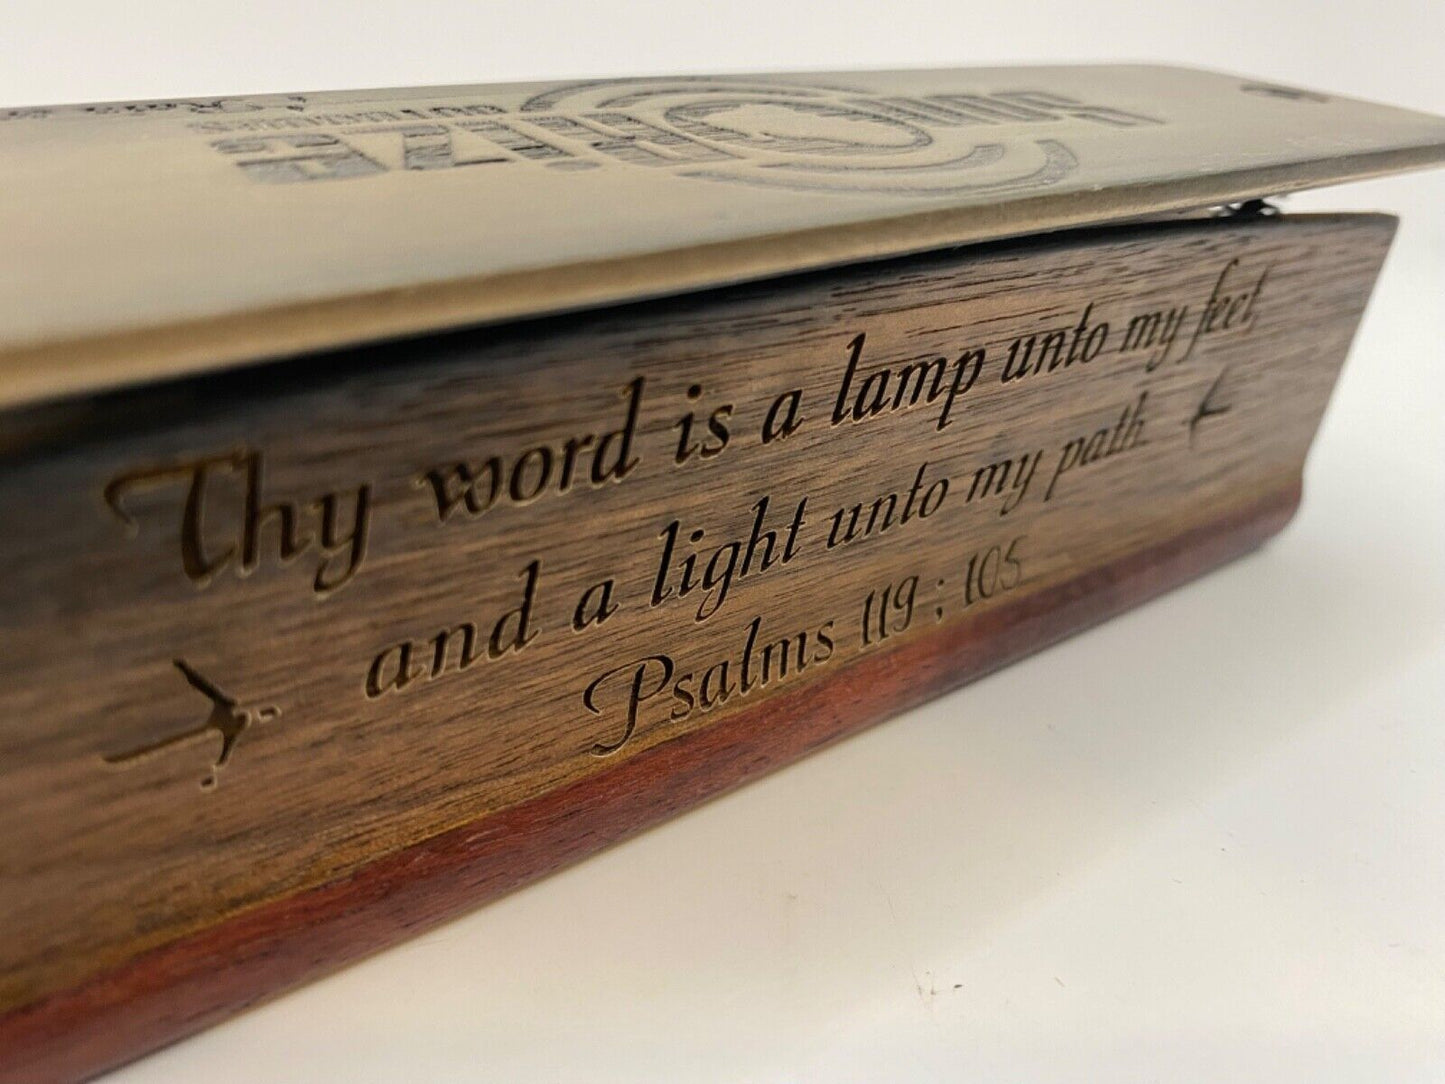 Thy word is a lamp unto my feet,
and a light unto my path.
Psalms 119 ; 105